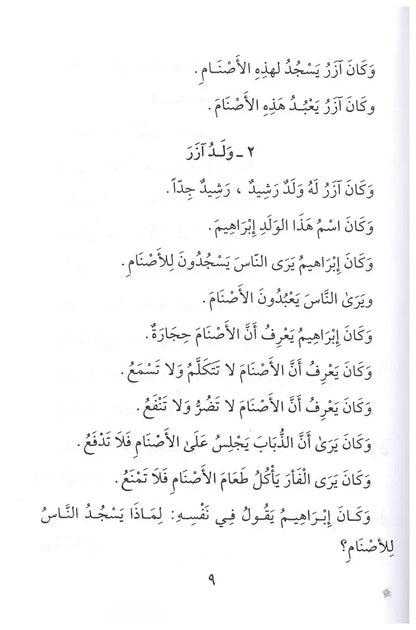 وَكَانَ آزَرُ يَسْجُدُ لهذِهِ الأَصْنَامِ.
وكَانَ آزَرُ يَعْبُدُ هَذِهِ الأَصْنَامَ.
٢ - وَلَـدُ آزَرَ
وَكَانَ آزَرُ لَهُ وَلَدٌ رَشِيدٌ ، رَشِيدٌ جِدّاً.
وَكَانَ اسْمُ هَذَا الوَلَدِ إِبْرَاهِيمَ.
وَكَانَ إِبْرَاهيمُ يَرَى النَّاسَ يَسْجُدُونَ لِلأَصْنَامِ.
ويَرَىٰ النَّاسَ يَعْبُدُونَ الأَصْنَامَ.
وَكَانَ إِبْرَاهِيمُ يَعْرِفُ أَنَّ الأَصْنَامَ حِجَارَةٌ.
وَكَانَ يَعْرِفُ أَنَّ الأَصْنَامَ لا تَتَكَلَّمُ وَلا تَسْمَعُ.
وَكَانَ يَعْرِفُ أَنَّ الأَصْنَامَ لا تَضُرُّ وَلا تَنْفَعُ.
وَكَانَ يَرَىٰ أَنَّ الذُّبَابَ يَجْلِسُ عَلَىٰ الأَصْنَامِ فَلَا تَدْفَعُ.
وَكَانَ يَرَى الفَأرَ يَأْكُلُ طَعَامَ الأَصْنَامِ فَلَا تَمْنَعُ.
وَكَانَ إِبْـرَاهِيمُ يَقُولُ فِي نَفْسِهِ: لِمَاذَا يَسْجُدُ النَّاسُ
لِلأَصْنَامِ؟
٩